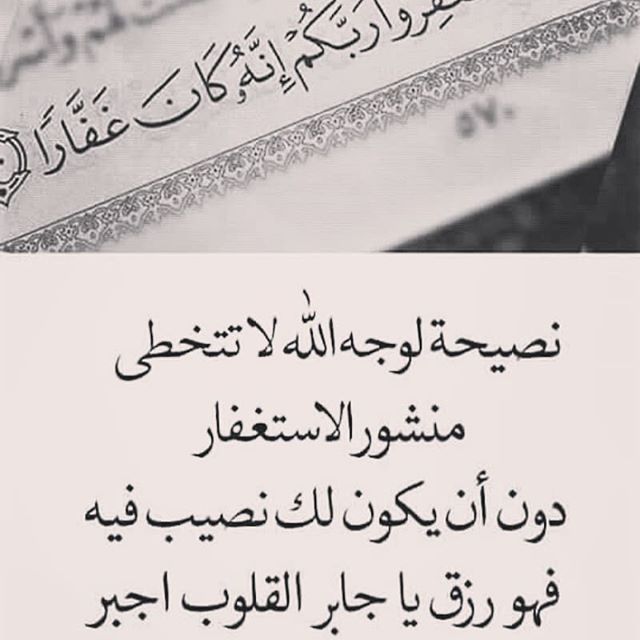 رَبَّكُمْ إِنَّهُ كَانَ غَفَّارًا
٥٧٠
نصيحة لوجه الله لا تتخطى
منشور الاستغفار
دون أن يكون لك نصيب فيه
فهو رزق يا جابر القلوب اجبر